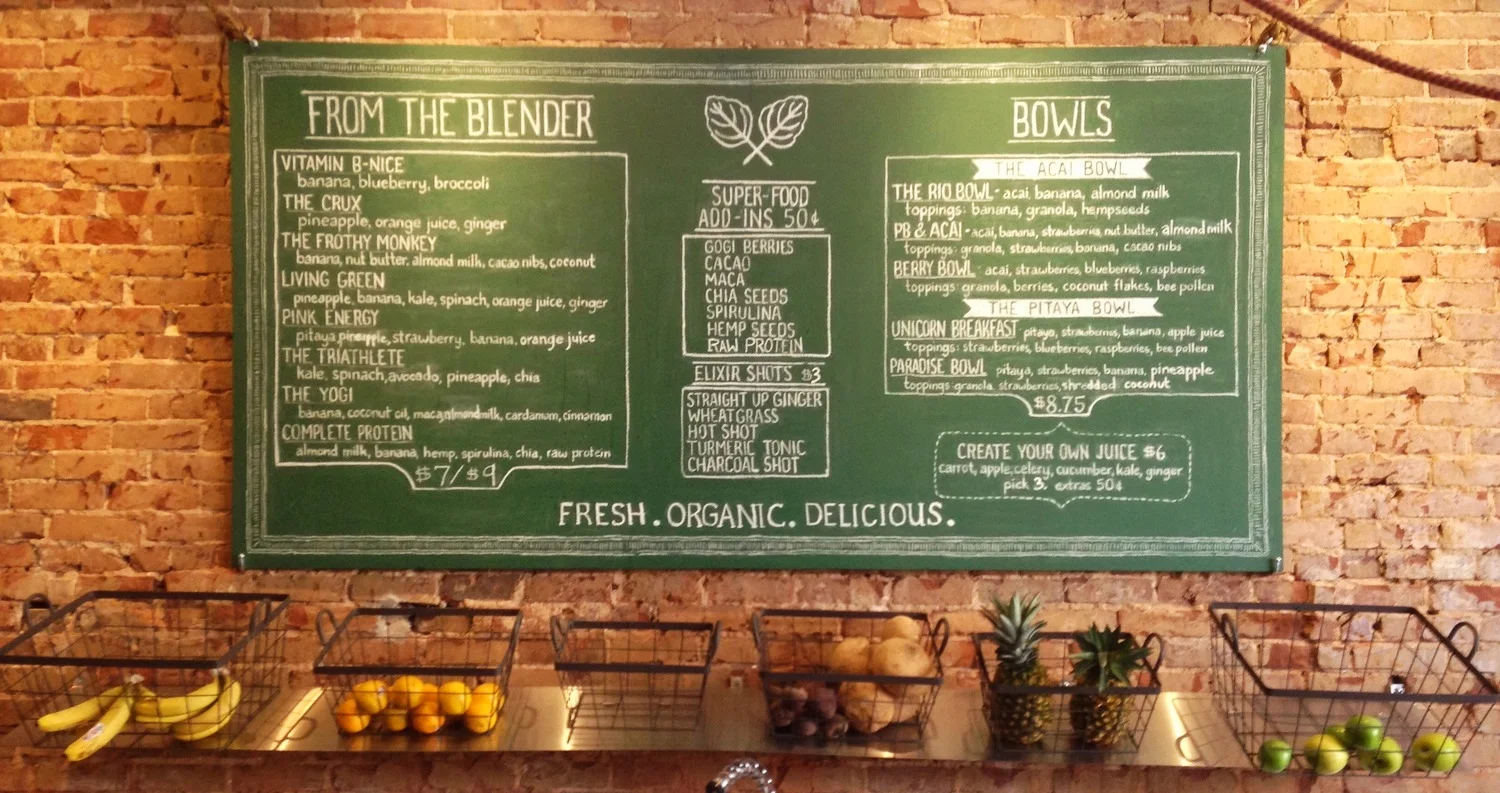 FROM THE BLENDER
VITAMIN B-NICE
banana, blueberry, broccoli
THE CRUX
pineapple, orange juice, ginger
THE FROTHY MONKEY
banana, nut butter, almond milk, cacao nibs, coconut
LIVING GREEN
pineapple, banana, kale, spinach, orange juice, ginger
PINK ENERGY
pitaya, pineapple, strawberry, banana, orange juice
THE TRIATHLETE
kale, spinach, avocado, pineapple, chia
THE YOGI
banana, coconut oil, maca, almond milk, cardamum, cinnamon
COMPLETE PROTEIN
almond milk, banana, hemp, spirulina, chia, raw protein
$7/$9
SUPER-FOOD
ADD-INS 50¢
GOGI BERRIES
CACAO
MACA
CHIA SEEDS
SPIRULINA
HEMP SEEDS
RAW PROTEIN
ELIXIR SHOTS $3
STRAIGHT UP GINGER
WHEATGRASS
HOT SHOT
TURMERIC TONIC
CHARCOAL SHOT
BOWLS
THE ACAI BOWL
THE RIO BOWL - acai, banana, almond milk
toppings: banana, granola, hempseeds
PB & ACAI - acai, banana, strawberries, nut butter, almond milk
toppings: granola, strawberries, banana, cacao nibs
BERRY BOWL - acai, strawberries, blueberries, raspberries
toppings: granola, berries, coconut flakes, bee pollen
THE PITAYA BOWL
UNICORN BREAKFAST pitaya, strawberries, banana, apple juice
toppings: strawberries, blueberries, raspberries, bee pollen
PARADISE BOWL pitaya, strawberries, banana, pineapple
toppings: granola, strawberries, shredded coconut
$8.75
CREATE YOUR OWN JUICE $6
carrot, apple, celery, cucumber, kale, ginger
pick 3. extras 50¢
FRESH. ORGANIC. DELICIOUS.